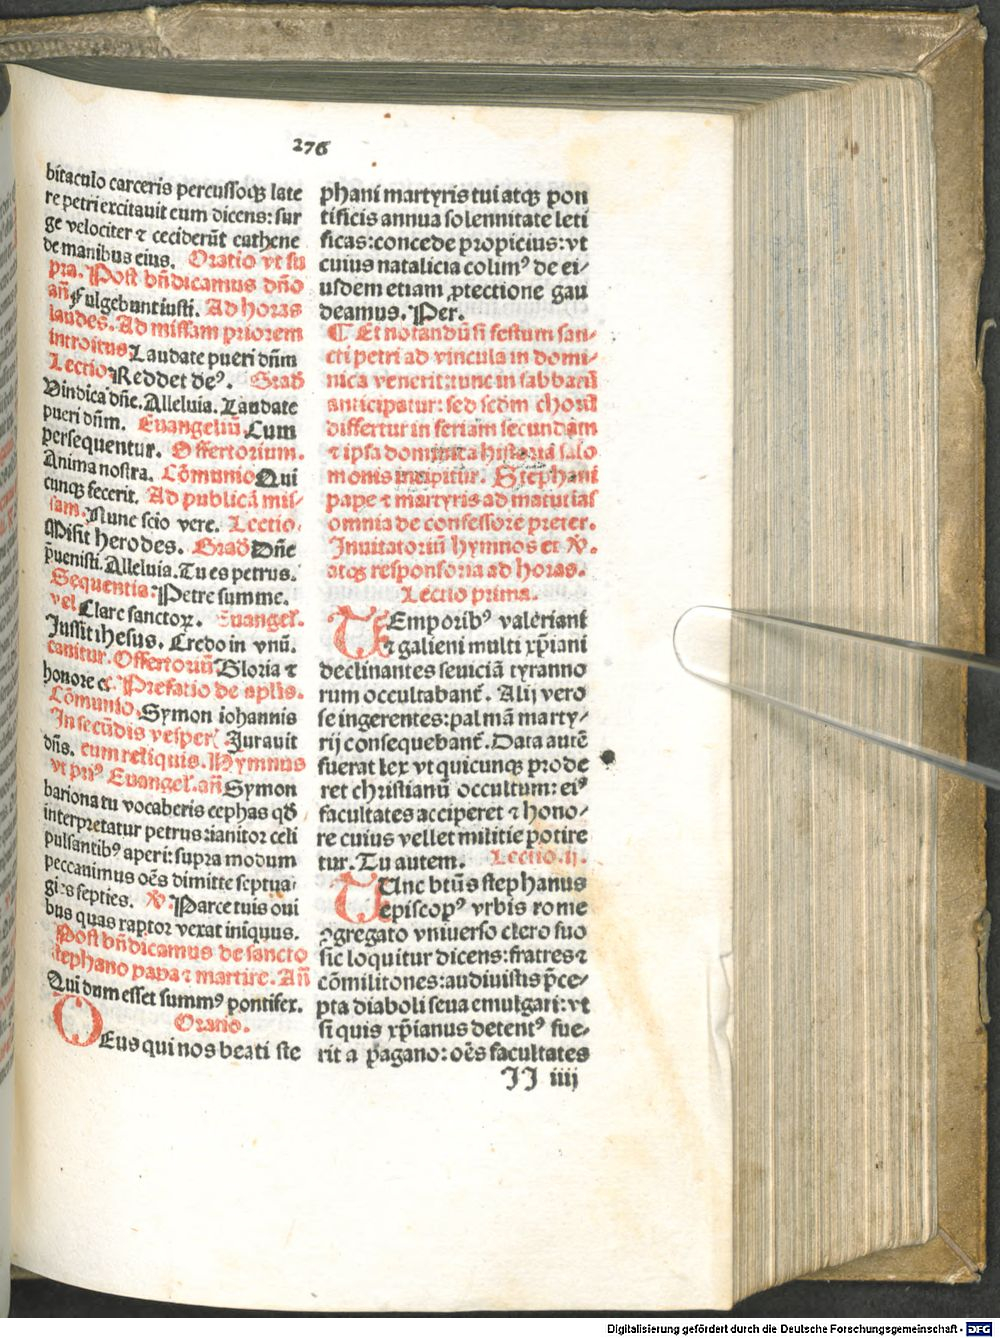 276
bitaculo carceris percussoqꝫ late
re petri excitauit eum dicens: sur
ge velociter ⁊ ceciderūt cathene
de manibus eius. Oratio vt su
pra. Post bn̄dicamus dn̄o
an̄ Fulgebunt iusti. Ad horas
laudes. Ad missam priorem
introitus Laudate pueri dn̄m
Lectio Reddet deꝰ. Grad̄
Vindica dn̄e. Alleluia. Laudate
pueri dn̄m. Euangeliū Cum
persequentur. Offertorium.
Anima nostra. Cōmunio Qui
cunqꝫ fecerit. Ad publicā mis-
sam. Nunc scio vere. Lectio.
Misit herodes. Grad̄ Dn̄e
p̄uenisti. Alleluia. Tu es petrus.
Sequentia: Petre summe.
vel Clare sanctoꝝ. Euangel̄.
Jussit ihesus. Credo in vnū.
canitur. Offertoriū Gloria ⁊
honore ꝛc̄. Prefatio de aplis.
Cōmunio. Symon iohannis
In secūdis vesper̄ Jurauit
dn̄s. cum reliquis. Hymnus
vt pri⁹ Euangel̄. an̄ Symon
bariona tu vocaberis cephas qd̄
interpretatur petrus: ianitor celi
pulsantibꝰ aperi: supra modum
peccauimus oēs dimitte septua-
gies septies. ℣. Parce tuis oui
bus quas raptor vexat iniquus.
Post bn̄dicamus de sancto
stephano papa ⁊ martire. An̄
Qui dum esset summꝰ pontifex.
Oratio.
DEus qui nos beati ste
phani martyris tui atqꝫ pon
tificis annua solennitate leti
ficas: concede propicius: vt
cuius natalicia colimꝰ de ei/
usdem etiam ꝓtectione gau
deamus. Per.
¶ Et notandū si festum san-
cti petri ad vincula in domi/
nica venerit: tunc in sabbatū
anticipatur: sed scdm chorū
differtur in feriam secundam
⁊ ipsa dominica historia salo
monis incipitur. Stephani
pape ⁊ martyris ad matutias
omnia de confessore preter.
Inuitatoriū hymnos et ℣.
atqꝫ responsoria ad horas.
Lectio prima.
TEmporibꝰ valeriani
⁊ galieni multi xp̄iani
declinantes seuiciā tyranno
rum occultabant̄. Alij vero
se ingerentes: palmā marty/
rij consequebant̄. Data autē
fuerat lex vt quicunqꝫ prode
ret christianū occultum: eiꝰ
facultates acciperet ⁊ hono/
re cuius vellet militie potire
tur. Tu autem. Lectio. ij.
TUnc btūs stephanus
episcopꝰ vrbis rome
ꝯgregato vniuerso clero suo
sic loquitur dicens: fratres ⁊
cōmilitones: audiuistis p̄ce-
pta diaboli seua emulgari: vt
si quis xp̄ianus detentꝰ fue-
rit a pagano: oēs facultates
II iiij
Digitalisierung gefördert durch die Deutsche Forschungsgemeinschaft - DFG